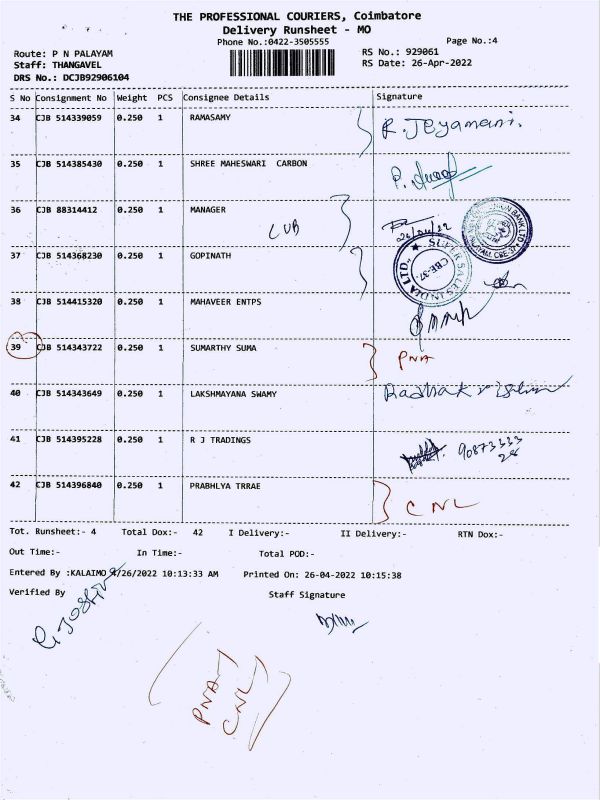 THE PROFESSIONAL COURIERS, Coimbatore
Delivery Runsheet - MO
Phone No.:0422-3505555 Page No.:4
Route: P N PALAYAM RS No.: 929061
Staff: THANGAVEL RS Date: 26-Apr-2022
DRS No.: DCJB92906104
S No Consignment No Weight PCS Consignee Details Signature
34 CJB 514339059 0.250 1 RAMASAMY R. Jeyamani.
35 CJB 514385430 0.250 1 SHREE MAHESWARI CARBON P.
36 CJB 88314412 0.250 1 MANAGER
CUB 26/04/22
37 CJB 514368230 0.250 1 GOPINATH
SUPER SALES INDIA LTD., CBE-37.
38 CJB 514415320 0.250 1 MAHAVEER ENTPS
39 CJB 514343722 0.250 1 SUMARTHY SUMA PNA
40 CJB 514343649 0.250 1 LAKSHMAYANA SWAMY
41 CJB 514395228 0.250 1 R J TRADINGS 90873333
28
42 CJB 514396840 0.250 1 PRABHLYA TRRAE CNL
Tot. Runsheet:- 4 Total Dox:- 42 I Delivery:- II Delivery:- RTN Dox:-
Out Time:- In Time:- Total POD:-
Entered By :KALAIMO 4/26/2022 10:13:33 AM Printed On: 26-04-2022 10:15:38
Verified By Staff Signature
PNA-1
CNL-1